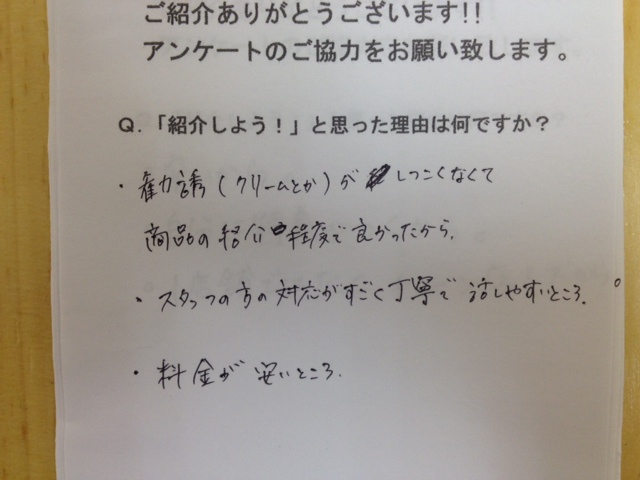 ご紹介ありがとうございます!!
アンケートのご協力をお願い致します。
Q.「紹介しよう！」と思った理由は何ですか？
・勧誘(クリームとか)がしつこくなくて
商品の紹介程度で良かったから。
・スタッフの方の対応がすごく丁寧で話しやすいところ。
・料金が安いところ。